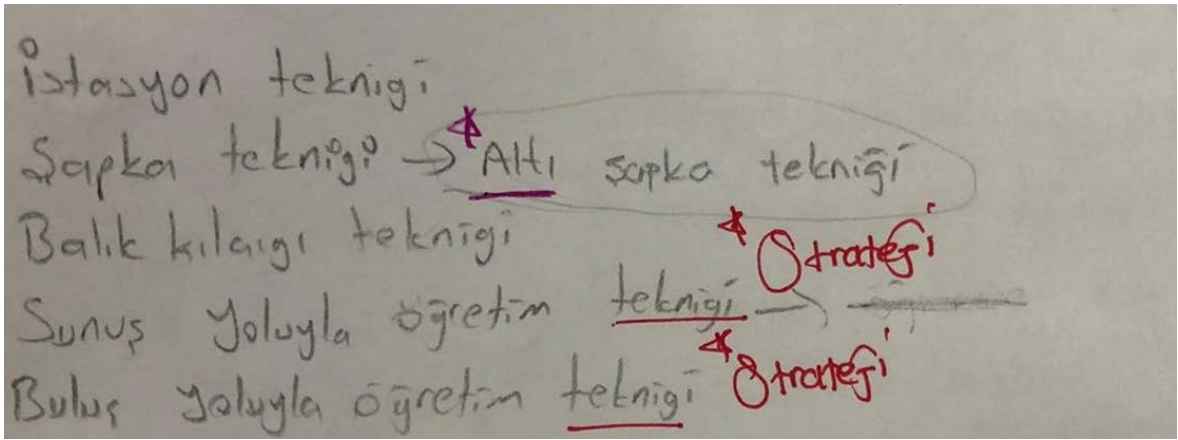 İstasyon tekniği
Şapka tekniği → * Altı şapka tekniği
Balık kılçığı tekniği
* Strateji
Sunuş yoluyla öğretim tekniği →
* Strateji
Buluş yoluyla öğretim tekniği